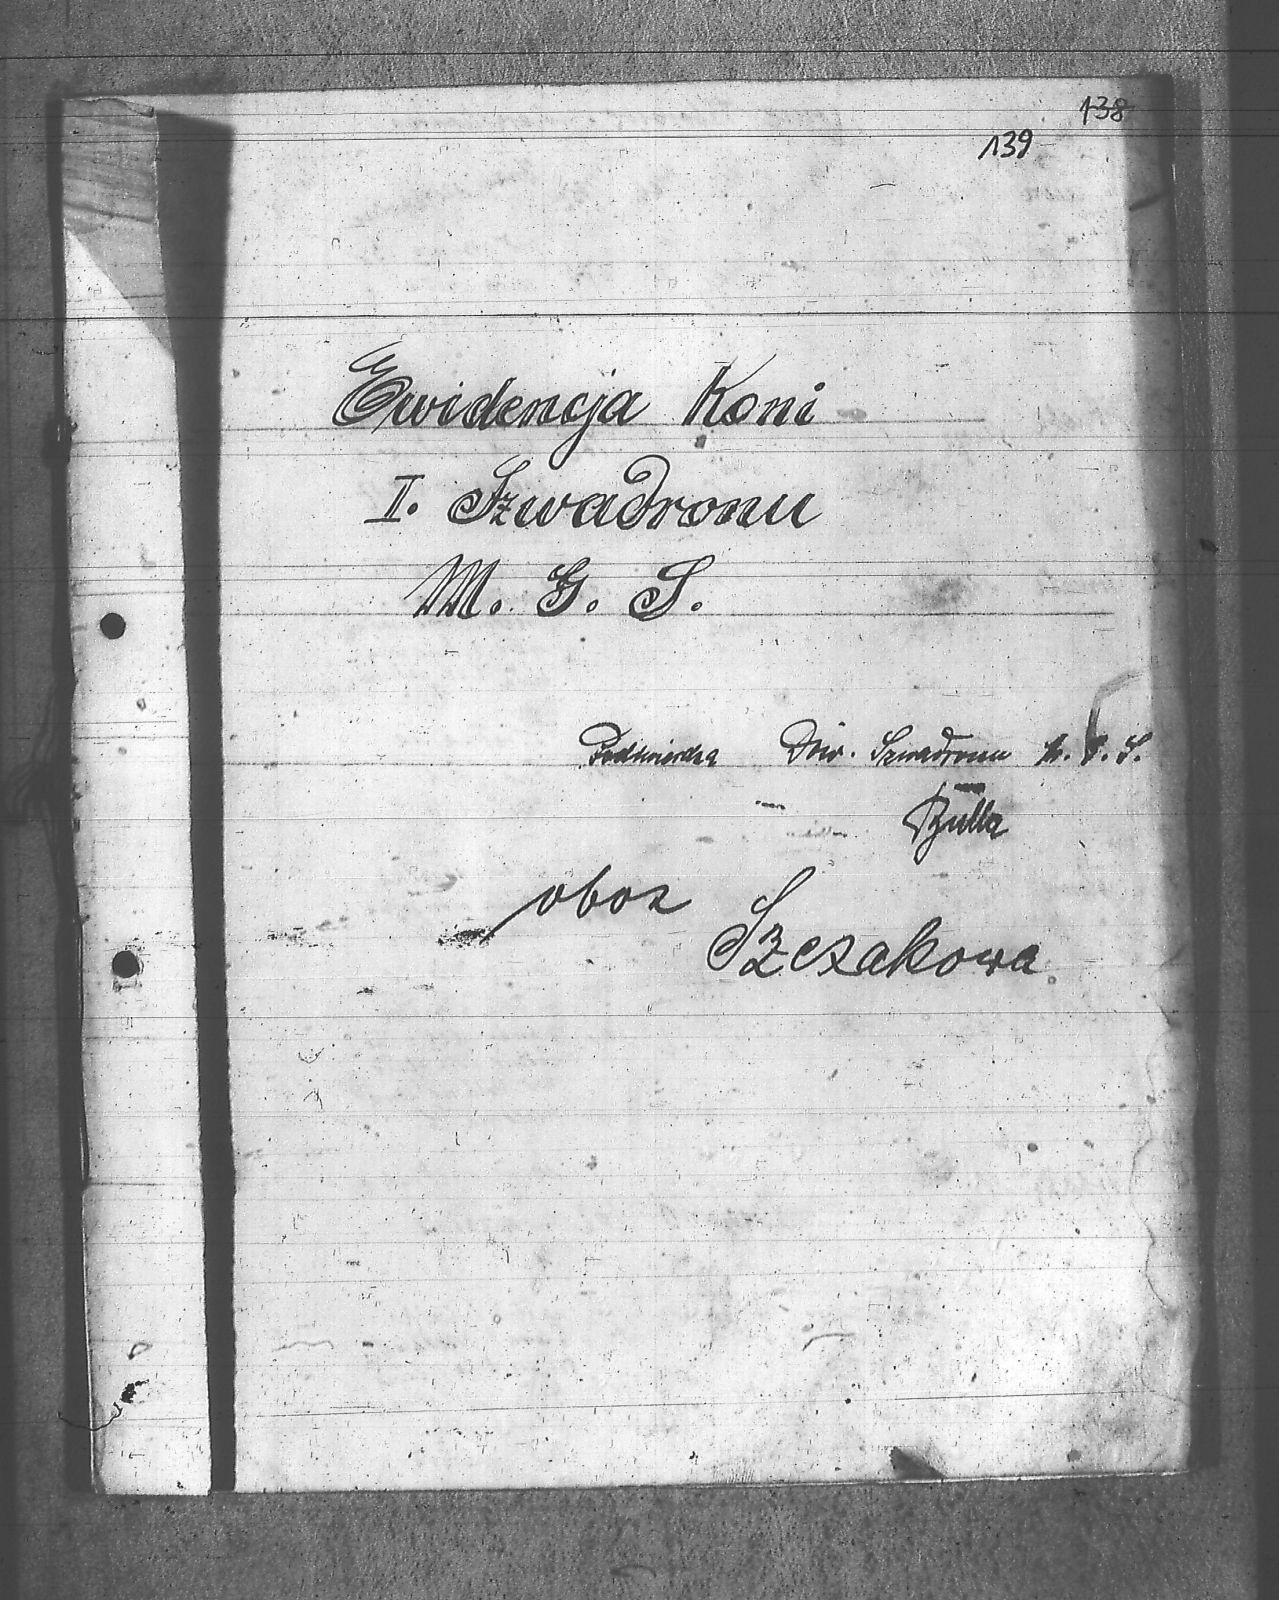 138
139
Ewidencja Koni
I. Szwadronu
M. G. S.
Podkwierdza Dow. Szwadronu M. G. S.
Bulla
oboz
Szczakowa